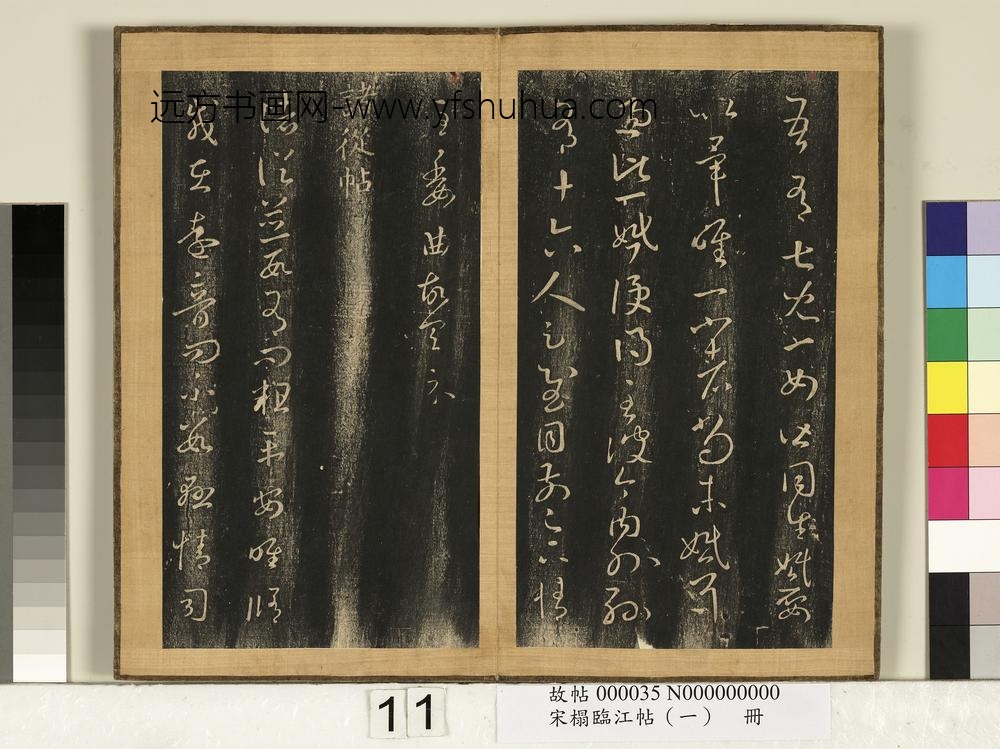 吾有七兒一女皆同生婚娶
以畢唯一小者尚未婚耳
過此一婚便得至彼今內外孫
有十六人足慰目前足下情
至委曲故具示
諸從帖
諸從並數有問粗平安唯脩
載在遠音問不數懸情司
远方书画网-www.yfshuhua.com
11
故帖 000035 N000000000
宋榻臨江帖（一） 冊